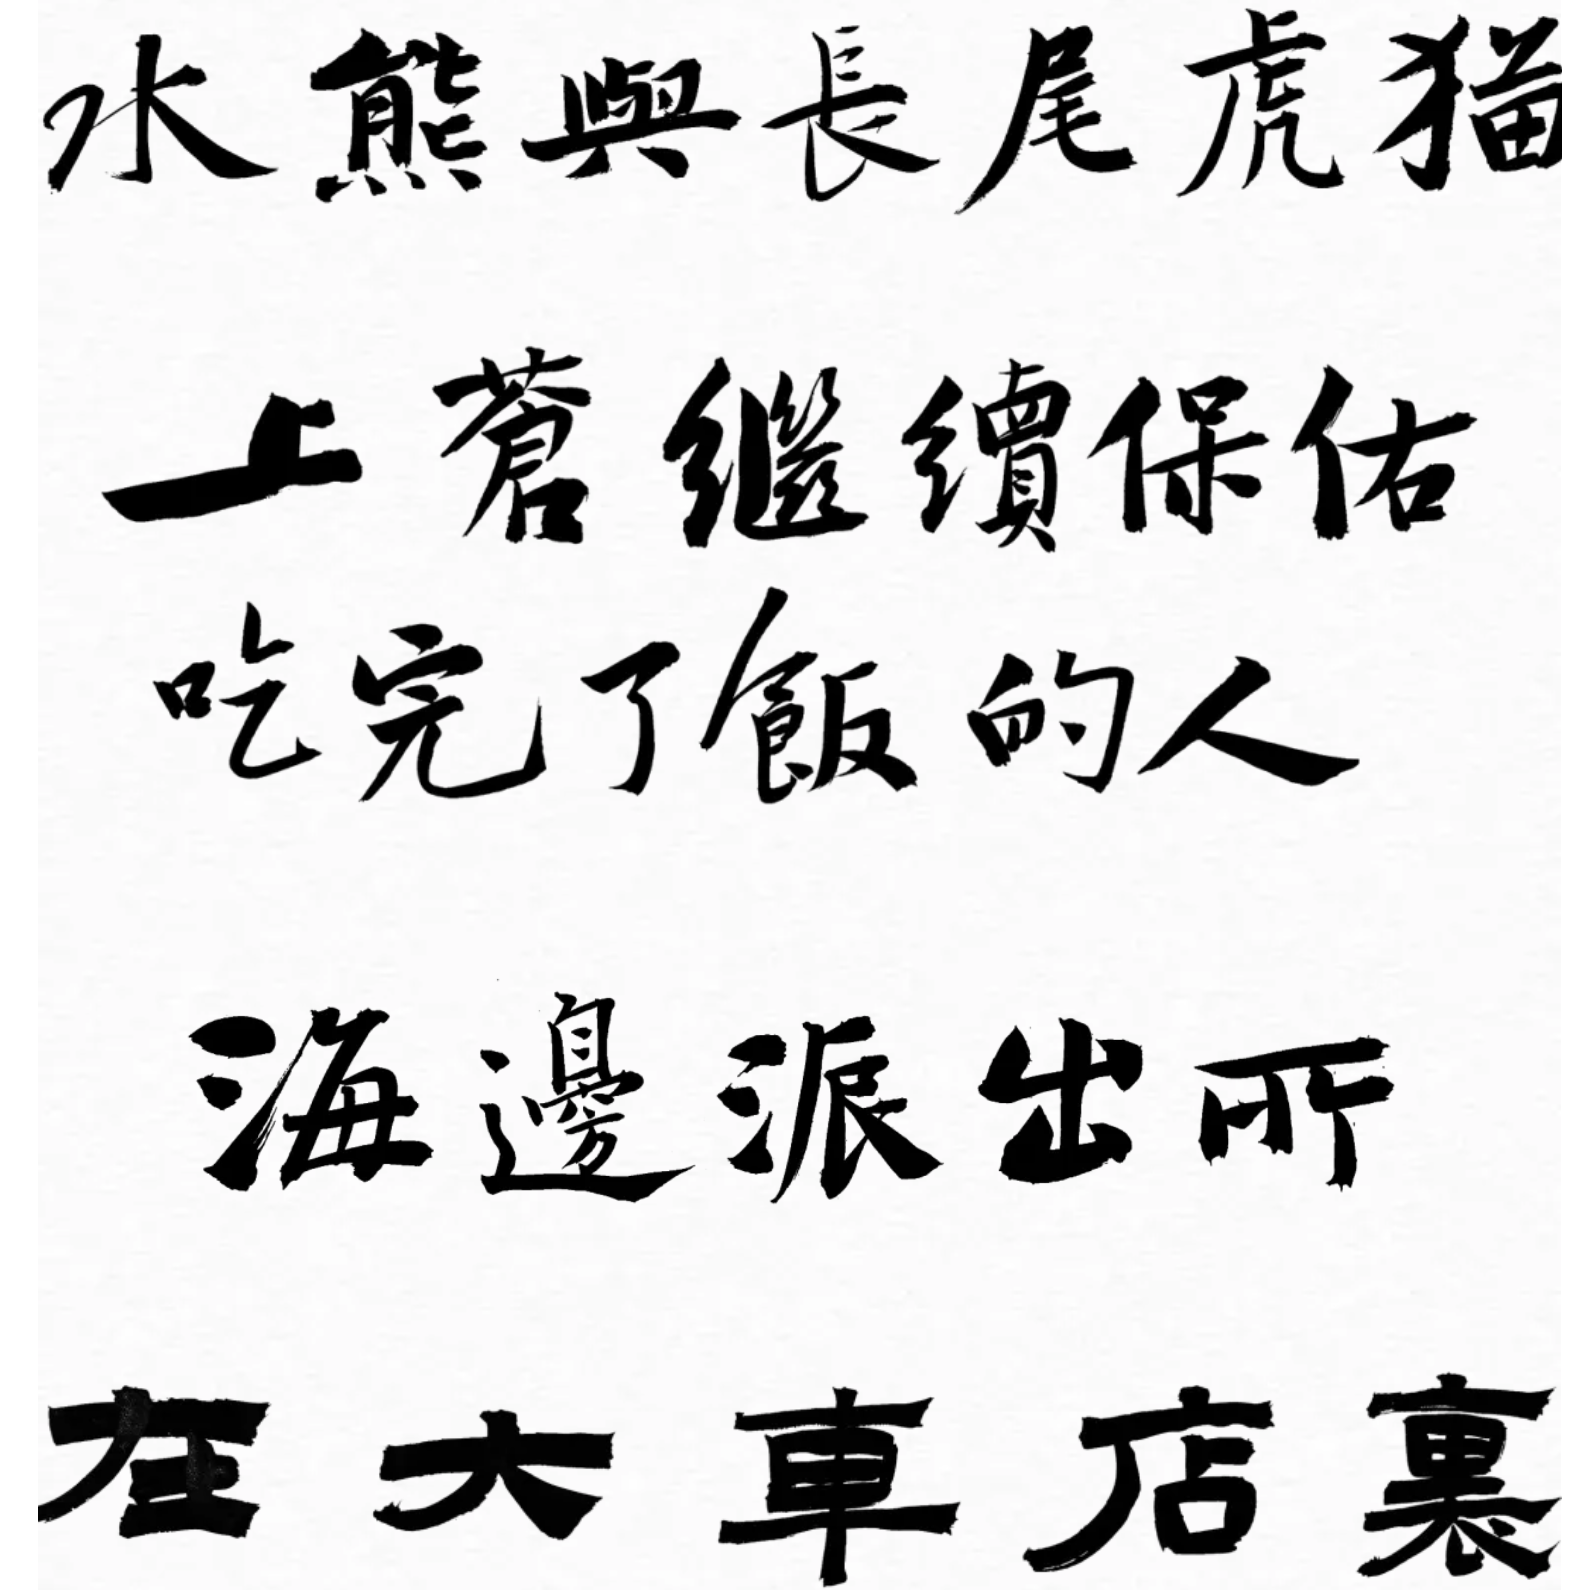 水熊與長尾虎猫
上蒼繼續保佑
吃完了飯的人
海邊派出所
在大車店裏